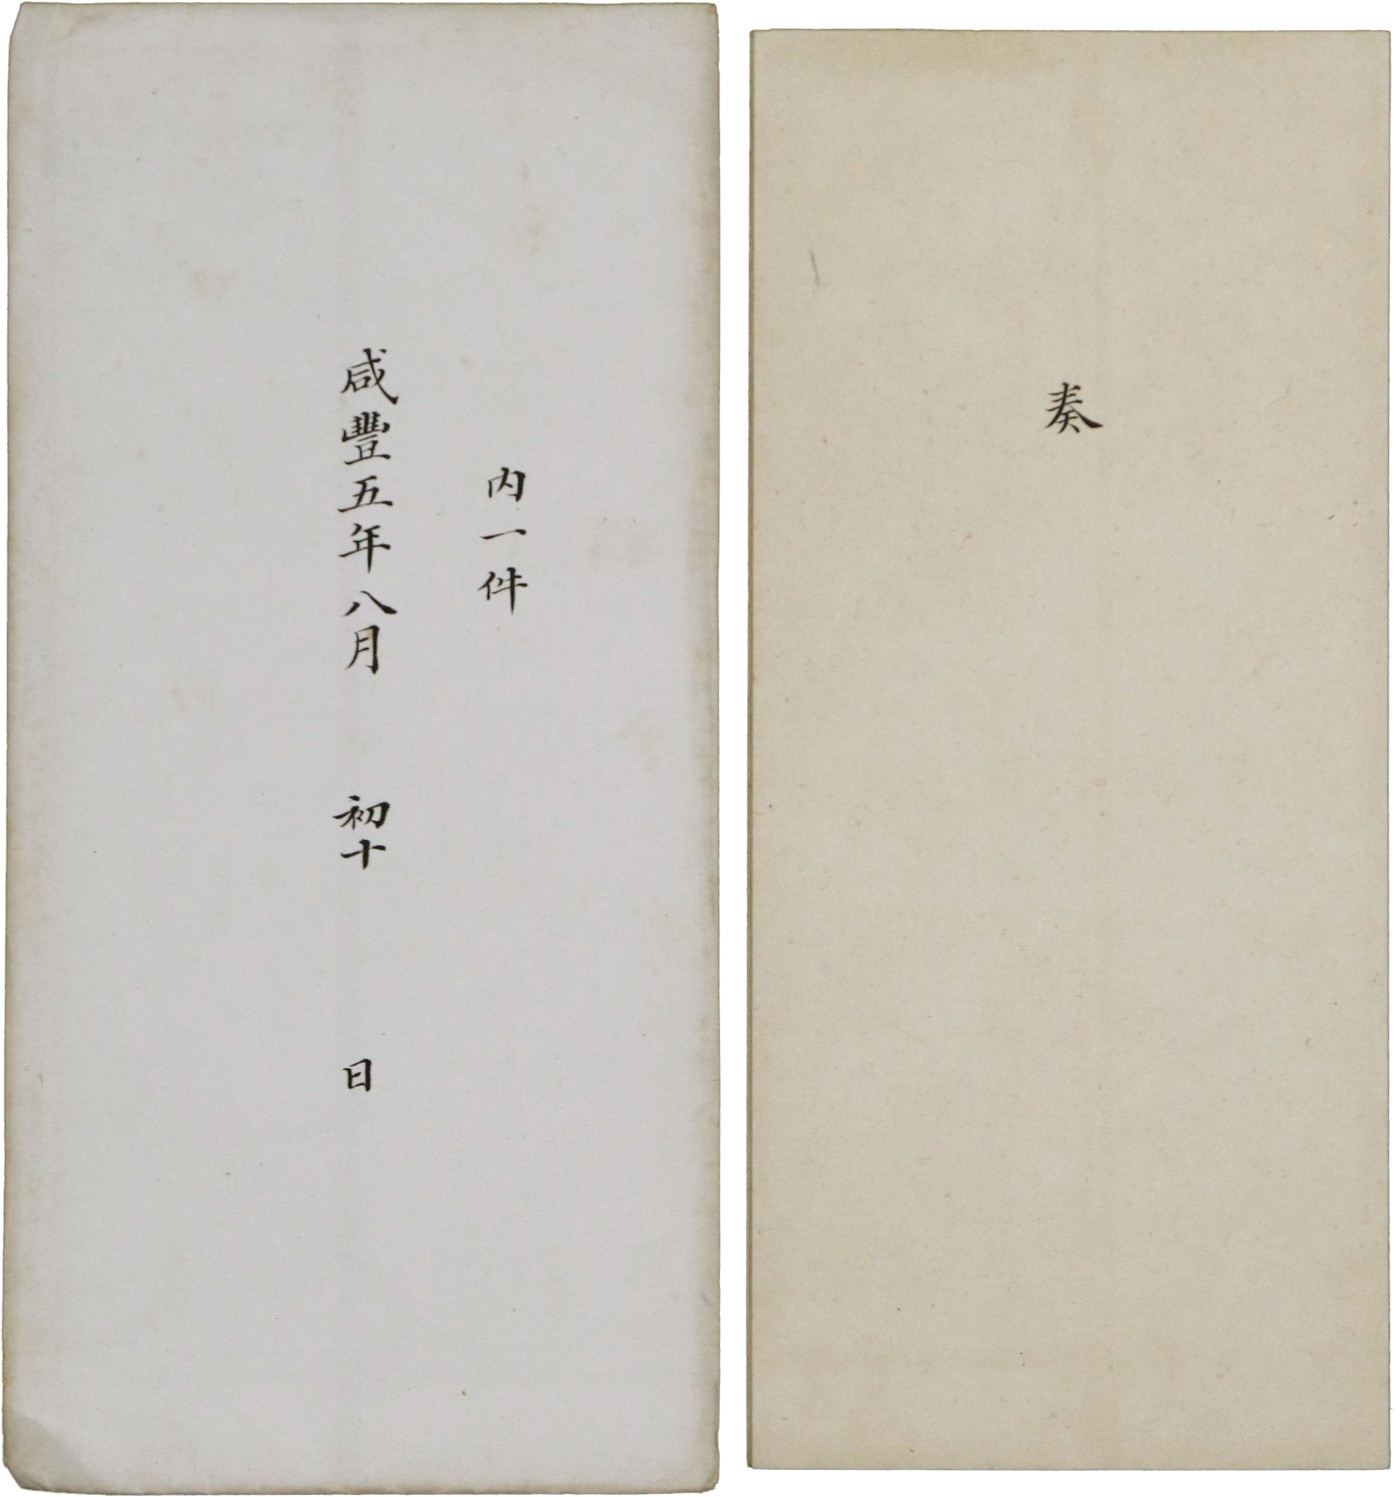 奏
内一件
咸豐五年八月 初十 日